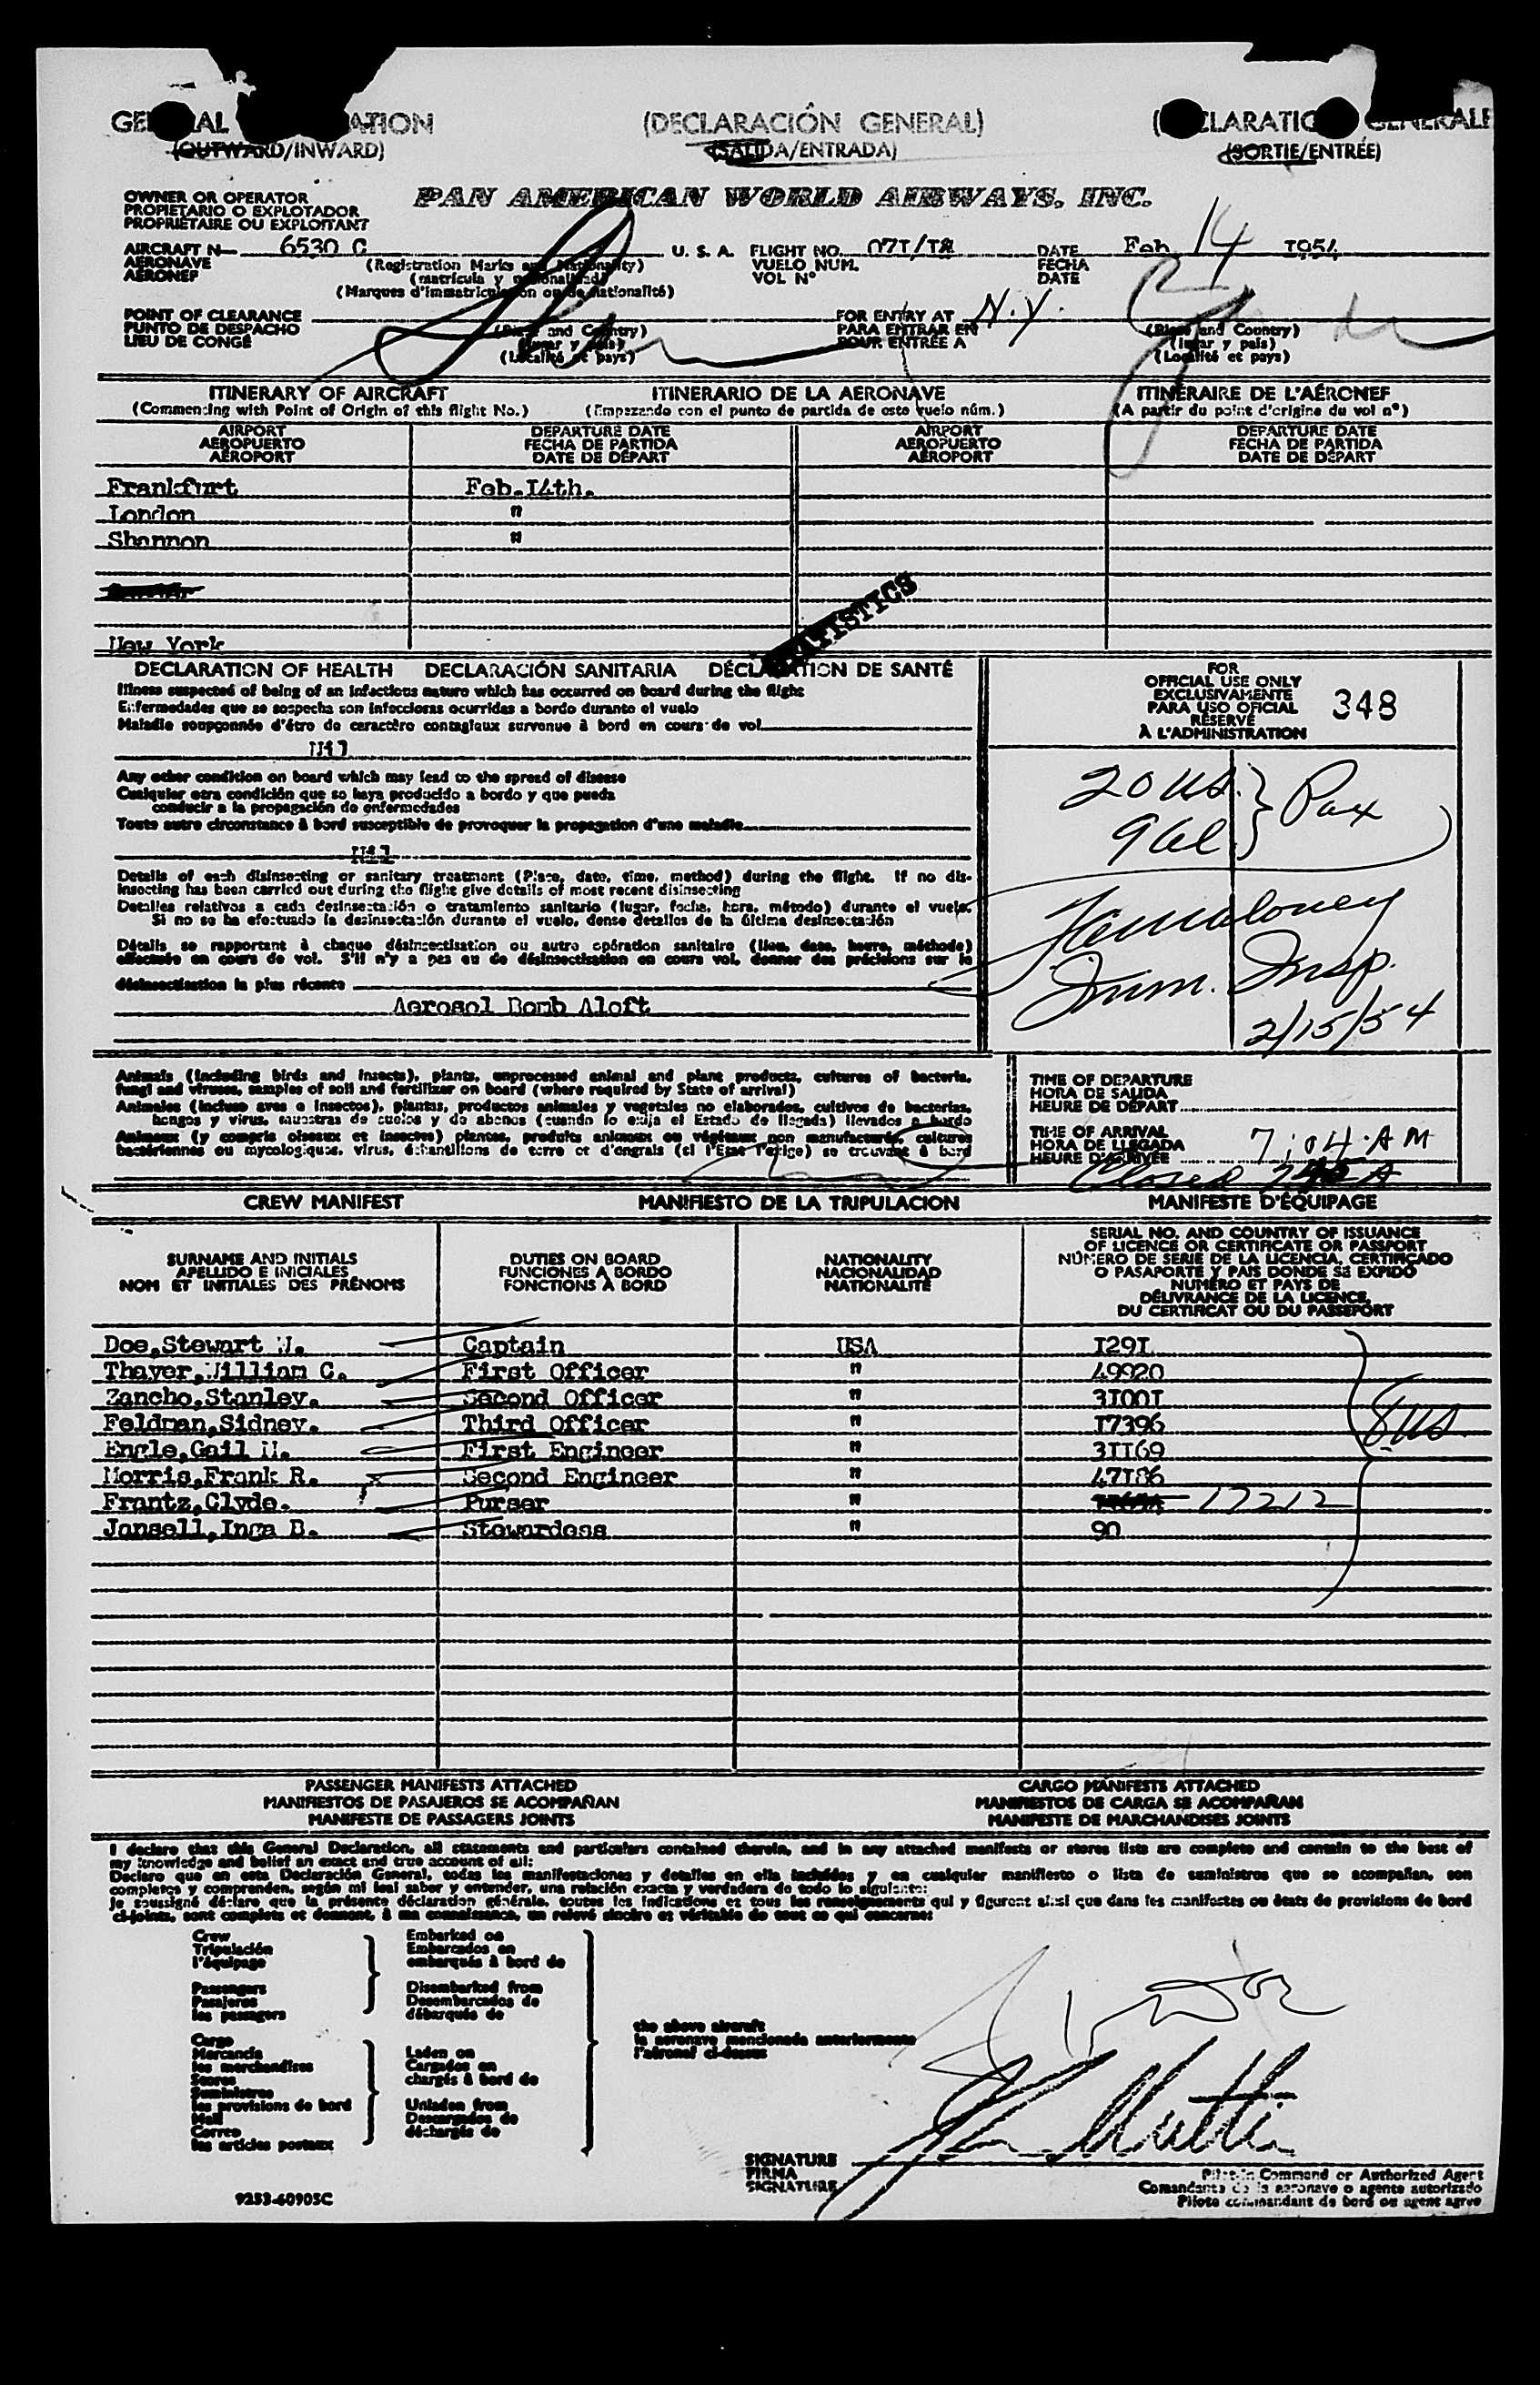 (DECLARACIÓN GENERAL)
(OUTWARD/INWARD) (SALIDA/ENTRADA) (SORTIE/ENTRÉE)
OWNER OR OPERATOR
PROPIETARIO O EXPLOTADOR
PROPRIÉTAIRE OU EXPLOITANT
PAN AMERICAN WORLD AIRWAYS, INC.
AIRCRAFT N 6530 C U. S. A. FLIGHT NO. 071/I2 DATE Feb 14 I954
AÉRONAVE (Registration Marks and Nationality) VUELO NUM. FECHA
AÉRONEF (matrícula y nacionalidad) VOL Nº DATE
(Marques d'immatriculation ou de nationalité)
POINT OF CLEARANCE FOR ENTRY AT N.Y.
PUNTO DE DESPACHO (Place and Country) PARA ENTRAR EN (Place and Country)
LIEU DE CONGÉ (lugar y país) POUR ENTRÉE A (lugar y país)
(Localité et pays) (Localité et pays)
ITINERARY OF AIRCRAFT ITINERARIO DE LA AERONAVE ITINÉRAIRE DE L'AÉRONEF
(Commencing with Point of Origin of this flight No.) (Empezando con el punto de partida de este vuelo núm.) (A partir du point d'origine du vol nº)
AIRPORT DEPARTURE DATE AIRPORT DEPARTURE DATE
AEROPUERTO FECHA DE PARTIDA AEROPUERTO FECHA DE PARTIDA
AÉROPORT DATE DE DÉPART AÉROPORT DATE DE DÉPART
Frankfurt Feb.I4th.
London "
Shannon "
New York
STATISTICS
DECLARATION OF HEALTH DECLARACIÓN SANITARIA DÉCLARATION DE SANTÉ
Illness suspected of being of an infectious nature which has occurred on board during the flight
Enfermedades que se sospecha son infecciosas ocurridas a bordo durante el vuelo
Maladie soupçonnée d'être de caractère contagieux survenue à bord en cours de vol
Nil
Any other condition on board which may lead to the spread of disease
Cualquier otra condición que se haya producido a bordo y que pueda
conducir a la propagación de enfermedades
Toute autre circonstance à bord susceptible de provoquer la propagation d'une maladie
Nil
Details of each disinsecting or sanitary treatment (Place, date, time, method) during the flight. If no dis-
insecting has been carried out during the flight give details of most recent disinsecting
Detalles relativos a cada desinsectación o tratamiento sanitario (lugar, fecha, hora, método) durante el vuelo.
Si no se ha efectuado la desinsectación durante el vuelo, dense detalles de la última desinsectación
Détails se rapportant à chaque désinsectisation ou autre opération sanitaire (lieu, date, heure, méthode)
effectuée en cours de vol. S'il n'y a pas eu de désinsectisation en cours vol, donner des précisions sur la
désinsectisation la plus récente
Aerosol Bomb Aloft
FOR
OFFICIAL USE ONLY
EXCLUSIVAMENTE
PARA USO OFICIAL
RÉSERVÉ
À L'ADMINISTRATION
348
20 US.
9 al } Pax
Imm. Insp.
2/15/54
Animals (including birds and insects), plants, unprocessed animal and plant products, cultures of bacteria,
fungi and viruses, samples of soil and fertilizer on board (where required by State of arrival)
Animales (incluso aves e insectos), plantas, productos animales y vegetales no elaborados, cultivos de bacterias,
hongos y virus, muestras de suelos y de abonos (cuando lo exija el Estado de llegada) llevados a bordo
Animaux (y compris oiseaux et insectes) plantes, produits animaux ou végétaux non manufacturés, cultures
bactériennes ou mycologiques, virus, échantillons de terre et d'engrais (si l'Etat l'exige) se trouvant à bord
TIME OF DEPARTURE
HORA DE SALIDA
HEURE DE DÉPART
TIME OF ARRIVAL
HORA DE LLEGADA 7:04 AM
HEURE D'ARRIVÉE
Closed
CREW MANIFEST MANIFIESTO DE LA TRIPULACION MANIFESTE D'ÉQUIPAGE
SURNAME AND INITIALS
APELLIDO E INICIALES
NOM ET INITIALES DES PRÉNOMS
DUTIES ON BOARD
FUNCIONES A BORDO
FONCTIONS À BORD
NATIONALITY
NACIONALIDAD
NATIONALITÉ
SERIAL NO. AND COUNTRY OF ISSUANCE
OF LICENCE OR CERTIFICATE OR PASSPORT
NÚMERO DE SERIE DE LA LICENCIA, CERTIFICADO
O PASAPORTE Y PAIS DONDE SE EXPIDÓ
NUMÉRO ET PAYS DE
DÉLIVRANCE DE LA LICENCE,
DU CERTIFICAT OU DU PASSEPORT
Doe,Stewart W. Captain USA I29I
Thayer,William C. First Officer " 49920
Zancho,Stanley. Second Officer " 3I00I
Feldman,Sidney. Third Officer " I7396
Engle,Gail M. First Engineer " 3II69
Morris,Frank R. Second Engineer " 47I86
Frantz,Clyde. Purser " 17212
Jansell,Inga B. Stewardess " 90
8 US
PASSENGER MANIFESTS ATTACHED CARGO MANIFESTS ATTACHED
MANIFIESTOS DE PASAJEROS SE ACOMPAÑAN MANIFIESTOS DE CARGA SE ACOMPAÑAN
MANIFESTE DE PASSAGERS JOINTS MANIFESTE DE MARCHANDISES JOINTS
I declare that this General Declaration, all statements and particulars contained therein, and in any attached manifests or stores lists are complete and contain to the best of
my knowledge and belief an exact and true account of all:
Declaro que en esta Declaración General, todas las manifestaciones y detalles en ella incluídos y en cualquier manifiesto o lista de suministros que se acompañan, son
completos y comprenden, según mi leal saber y entender, una relación exacta y verdadera de todo lo siguiente:
Je soussigné déclare que la présente déclaration générale, toutes les indications et tous les renseignements qui y figurent ainsi que dans les manifestes ou états de provisions de bord
ci-joints, sont complets et donnent, à ma connaissance, un relevé sincère et véritable de tout ce qui concerne:
Crew Embarked on
Tripulación Embarcados en
l'équipage embarqués à bord de
Passengers Disembarked from
Pasajeros Desembarcados de
les passagers débarqués de
the above aircraft
la aeronave mencionada anteriormente
l'aéronef ci-dessus
Cargo
Mercancía Laden on
les marchandises Cargados en
Stores chargés à bord de
Suministros
les provisions de bord Unladen from
Mail Descargados de
Correo déchargés de
les articles postaux
SIGNATURE
FIRMA
SIGNATURE
Pilot in Command or Authorized Agent
Comandante de la aeronave o agente autorizado
Pilote commandant de bord ou agent agréé
9253-60905C